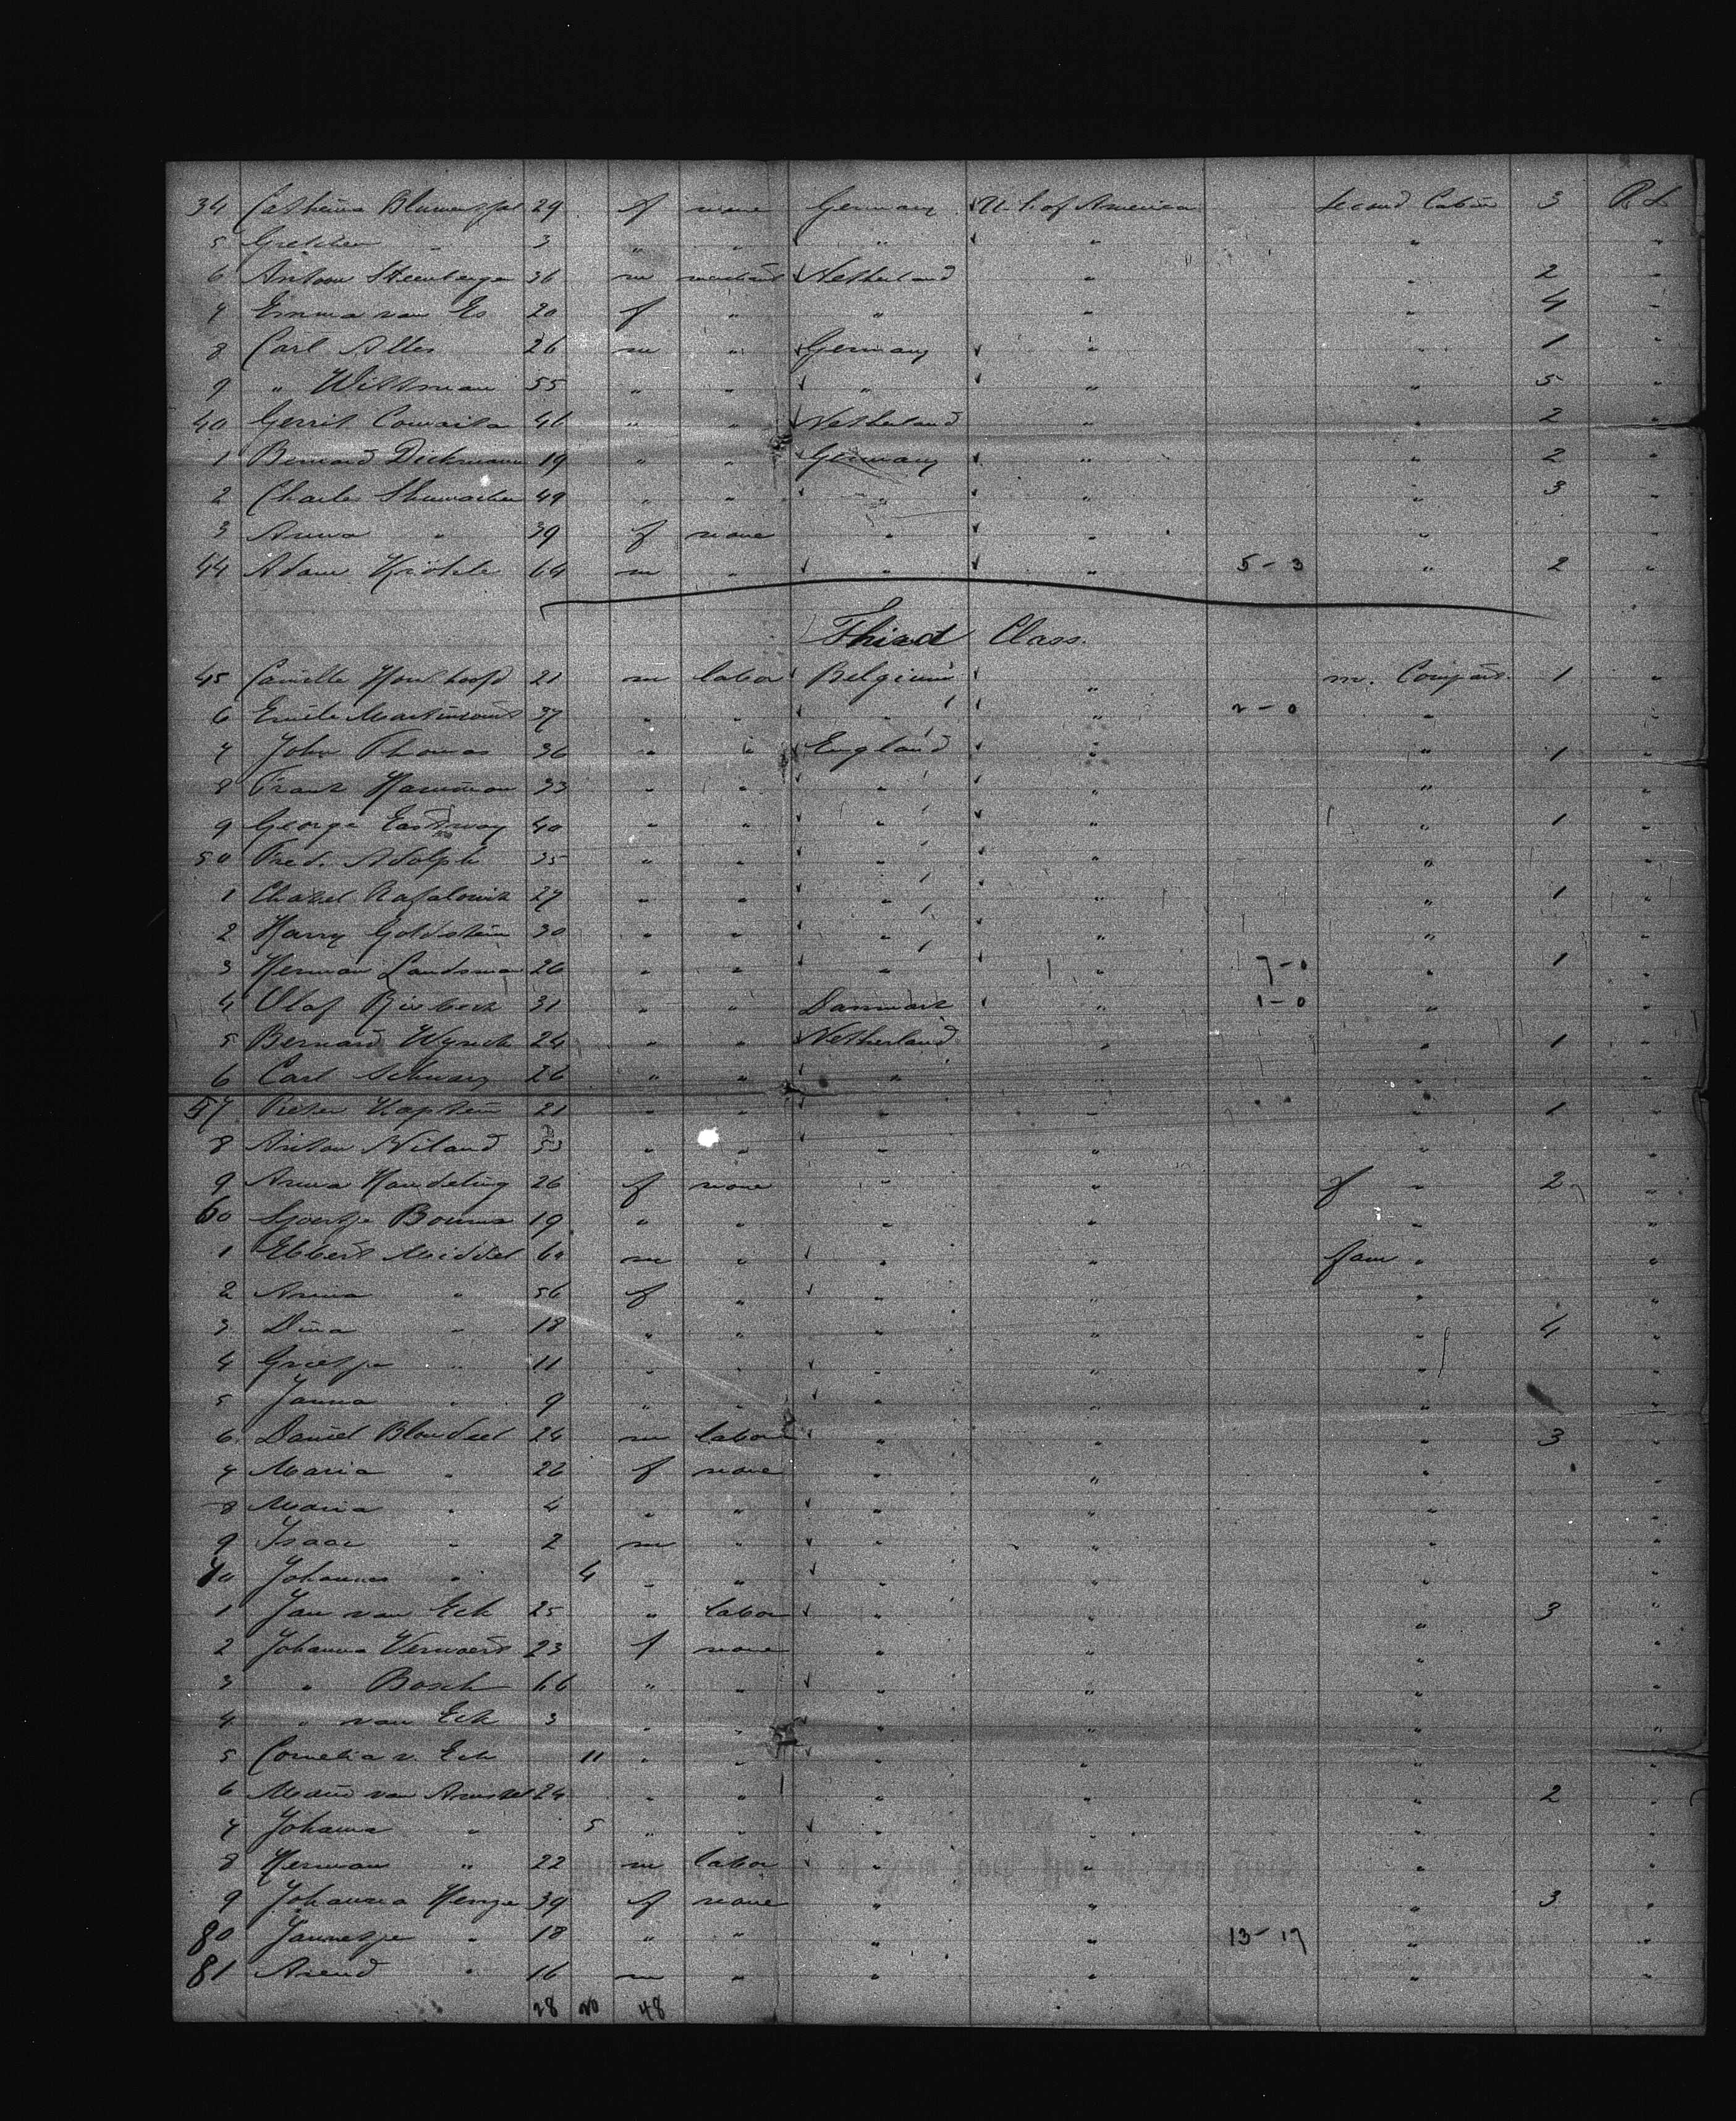 34 Catharina 29 f none Germany U. S. of America Second Cabin 3 R L
5 Gretchen " 3 " " " " "
6 Antoon 36 m merchant Netherland " " 2 "
7 Emma van Es 20 f " " " " 4 "
8 Carl Alles 26 m " Germany " " 1 "
9 " Wittman 55 " " " " " 5 "
40 Gerrit 46 " " Netherland " " 2 "
1 Bernard Dickmann 19 " " Germany " " 2 "
2 Charles Shumacher 49 " " " " " 3 "
3 Anna " 39 f none " " " "
44 Adam 64 m " " " 5-3 " 2 "
Third Class.
45 Camille 21 m labor Belgium " m. 1 "
6 Emile 37 " " " " 2-0 " "
7 John Thomas 36 " " England " " 1 "
8 Frank 33 " " " " " "
9 George Eastway 40 " " " " " 1 "
50 Fred. Adolph 35 " " " " " "
1 27 " " " " " 1 "
2 Harry Goldstein 30 " " " " " "
3 Herman Landsman 26 " " " " 7-0 " 1 "
4 Olaf 31 " " Danmark " 1-0 " "
5 Bernard 24 " " Netherland " " 1 "
6 Carl Schwarz 26 " " " " " "
57 Pieter Kaptein 21 " " " " " 1 "
8 Anton 53 " " " " " "
9 Anna Handeling 26 f none " " f " 2 "
60 Bouma 19 " " " " " "
1 Ebbert Middel 60 m " " " fam " "
2 Anna " 56 f " " " " "
3 Dina " 18 " " " " " 4 "
4 Grietje " 11 " " " " " "
5 Janna " 9 " " " " " "
6 Daniel Blondeel 24 m labor " " " 3 "
7 Maria " 26 f none " " " "
8 Maria " 4 " " " " " "
9 Isaac " 2 m " " " " "
70 Johannes " 4 " " " " " "
1 Jan van Eck 25 " labor " " " 3 "
2 Johanna 23 f none " " " "
3 " Bosch 66 " " " " " "
4 " van Eck 3 " " " " " "
5 Cornelia v. Eck 11 " " " " " "
6 van 24 " " " " " 2 "
7 Johanna " 5 " " " " " "
8 Herman " 22 m labor " " " "
9 Johanna 39 f none " " " 3 "
80 Jannetje " 18 " " " " 13-17 " "
81 Arend " 16 m " " " " "
28 20 48